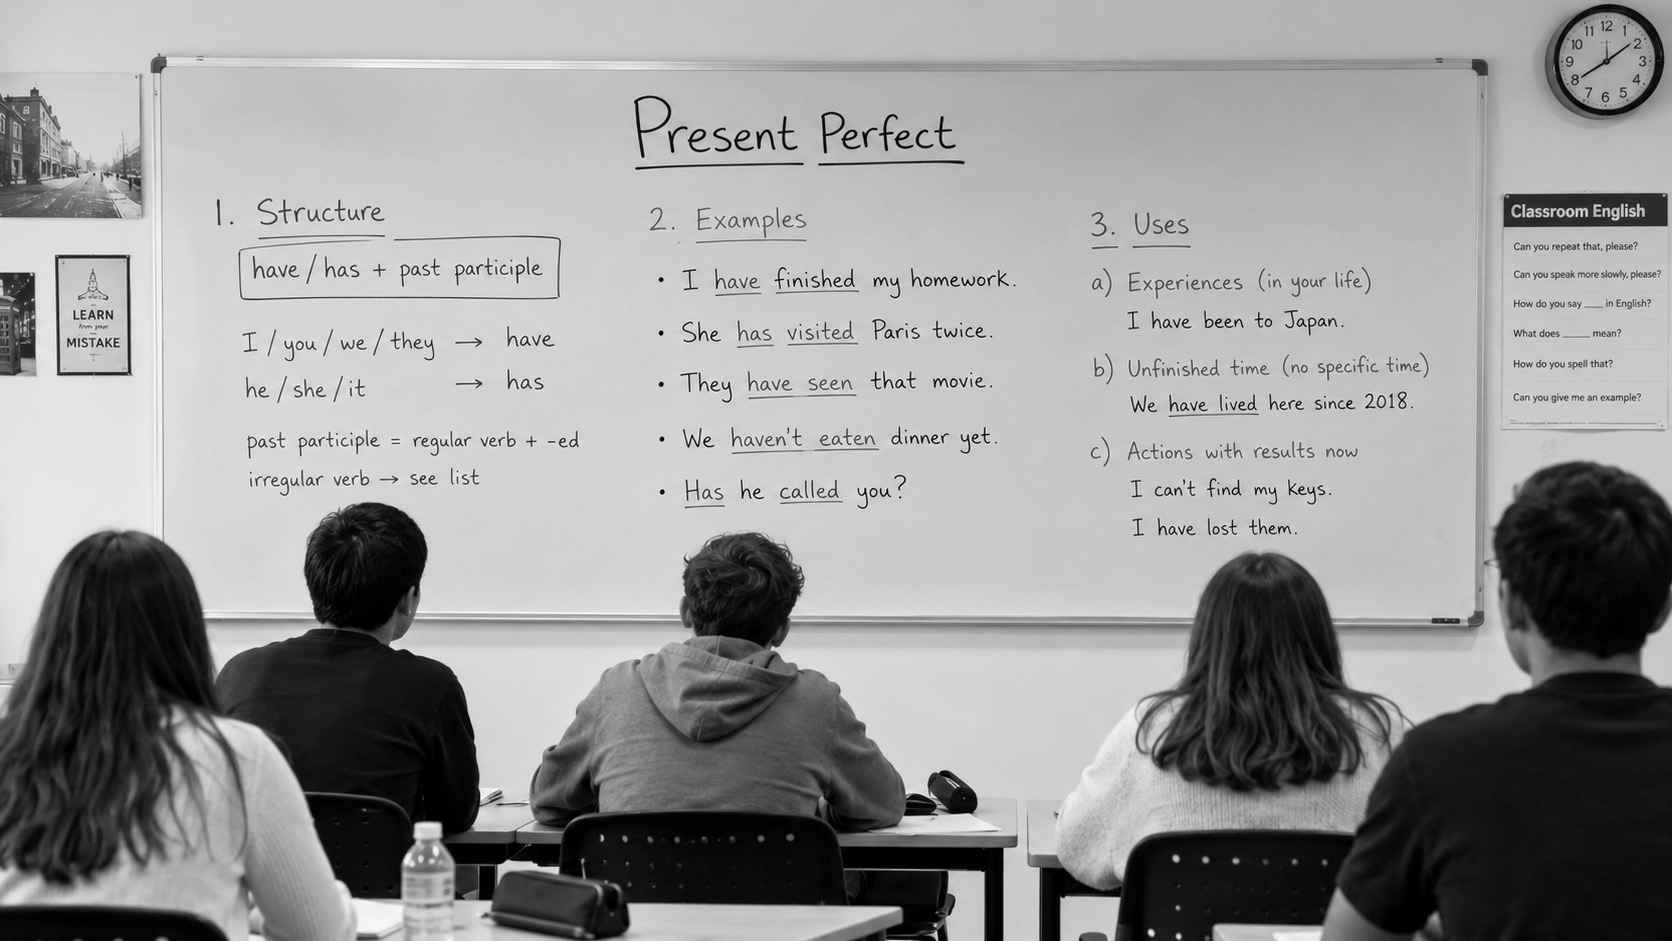 Present Perfect
1. Structure
have / has + past participle
I / you / we / they → have
he / she / it → has
past participle = regular verb + -ed
irregular verb → see list
2. Examples
• I have finished my homework.
• She has visited Paris twice.
• They have seen that movie.
• We haven't eaten dinner yet.
• Has he called you?
3. Uses
a) Experiences (in your life)
I have been to Japan.
b) Unfinished time (no specific time)
We have lived here since 2018.
c) Actions with results now
I can't find my keys.
I have lost them.
LEARN
from your
MISTAKE
12
1
2
3
4
5
6
7
8
9
10
11
Classroom English
Can you repeat that, please?
Can you speak more slowly, please?
How do you say ____ in English?
What does _____ mean?
How do you spell that?
Can you give me an example?